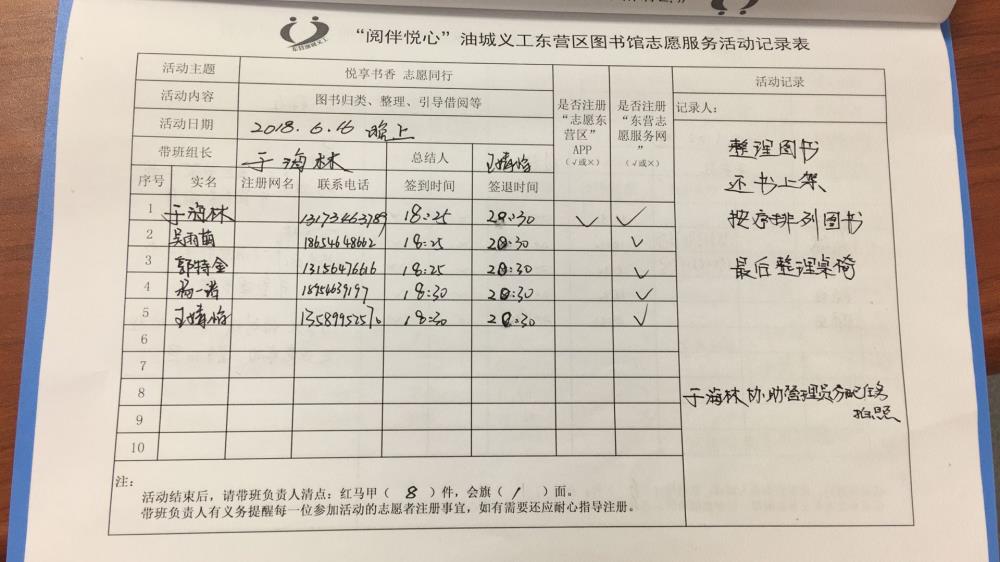 东营油城义工
“阅伴悦心”油城义工东营区图书馆志愿服务活动记录表
活动主题 悦享书香 志愿同行 是否注册“志愿东营区”APP（√或×） 是否注册“东营志愿服务网”（√或×） 活动记录
活动内容 图书归类、整理、引导借阅等
记录人：
活动日期 2018.6.16 晚上
带班组长 于海林 总结人 王婧怡
序号 实名 注册网名 联系电话 签到时间 签退时间
1 于海林 13173463789 18:25 20:30 √ √
2 吴雨萌 18654648662 18:25 20:30 √
3 郭特金 13156476616 18:25 20:30 √
4 一诺 18954639197 18:30 20:30 √
5 王婧怡 18:30 20:30 √
6
7
8
9
10
整理图书
还书上架
按序排列图书
最后整理桌椅
于海林协助管理员分配任务
拍照
注：
活动结束后，请带班负责人清点：红马甲（ 8 ）件，会旗（ 1 ）面。
带班负责人有义务提醒每一位参加活动的志愿者注册事宜，如有需要还应耐心指导注册。